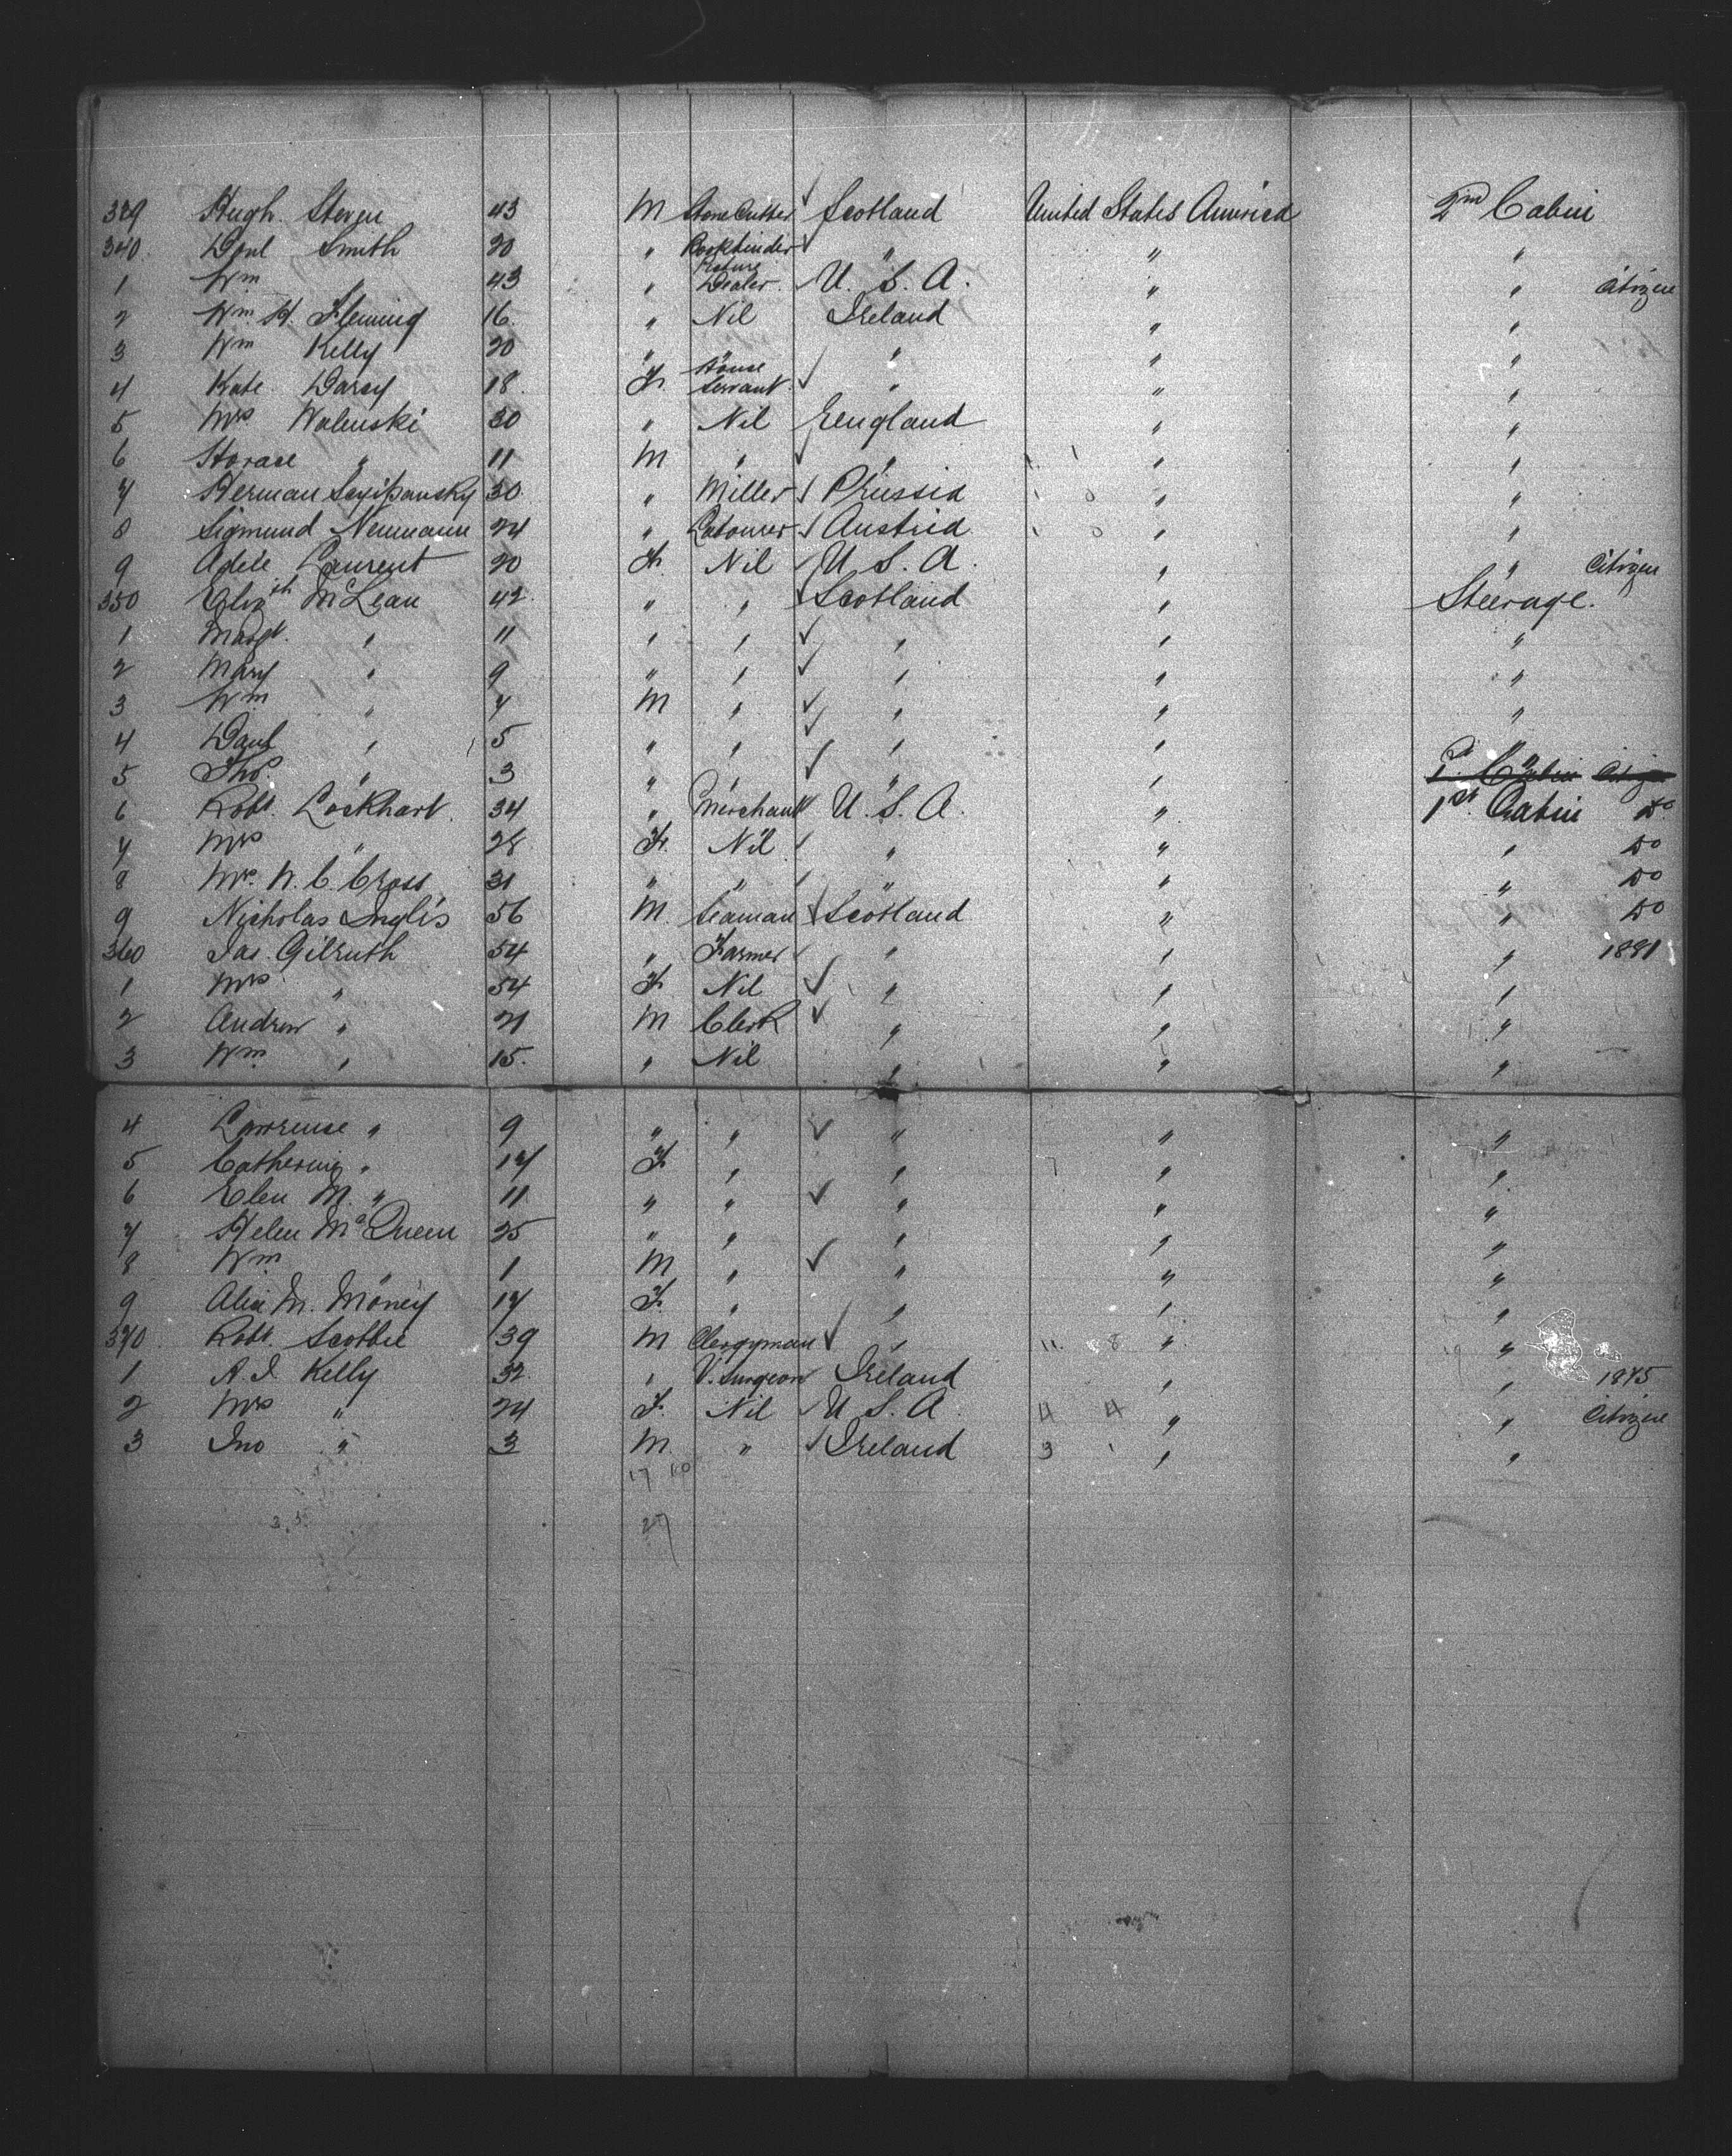 339 Hugh Steven 43 M Stone Cutter Scotland United States America 2nd Cabin
340 Danl Smith 20 " Bookbinder " " "
1 Wm " 43 " Picture Dealer U.S.A. " " Citizen
2 Wm H. Fleming 16 " Nil Ireland " "
3 Wm Kelly 20 " " " " "
4 Kate Darcy 18 F. House Servant " " "
5 Mrs Walenski 30 " Nil England " "
6 Horace " 11 M " " " "
7 Herman 30 " Miller Prussia " "
8 Sigmund Neumann 24 " Labourer Austria " "
9 Adele Laurent 20 F. Nil U.S.A. " " Citizen
350 Elizth McLean 42 " " Scotland " Steerage.
1 Margt. " 11 " " " " "
2 Mary " 9 " " " " "
3 Wm " 7 M " " " "
4 Danl " 5 " " " " "
5 Thos. " 3 " " " " "
6 Robt. Lockhart. 34 " Merchant U.S.A. " 1st Cabin Do
7 Mrs " 28 F. Nil " " " Do
8 Mrs. N. C. Cross 31 " " " " " Do
9 Nicholas Inglis 56 M. Seaman Scotland " " Do
360 Jas. Gilruth 54 " Farmer " " " 1881
1 Mrs " 54 F. Nil " " "
2 Andrew " 21 M Clerk " " "
3 Wm " 15. " Nil " " "
4 Lawrense " 9 " " " " "
5 Catherine " 17 F. " " " "
6 Elen M. " 11 " " " " "
7 Helen McQueen 25 " " " " "
8 Wm " 1 M " " " "
9 Alice M. Money 17 F. " " " "
370 Robt. Scobbie 39 M Clergyman " 11 8 " "
1 A. J. Kelly 32 " V. Surgeon Ireland " " 1875
2 Mrs " 24 F. Nil U.S.A. 4 4 " " Citizen
3 Jno " 3 M. " Ireland 3 1 " "
17 10
27